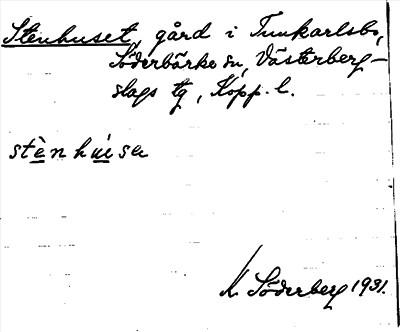 Stenhuset, gård i Tunkarlsbo,
Söderbärke sn, Västerberg-
slags tg, Kopp. l.
stènhúsa
K. Söderberg 1931.